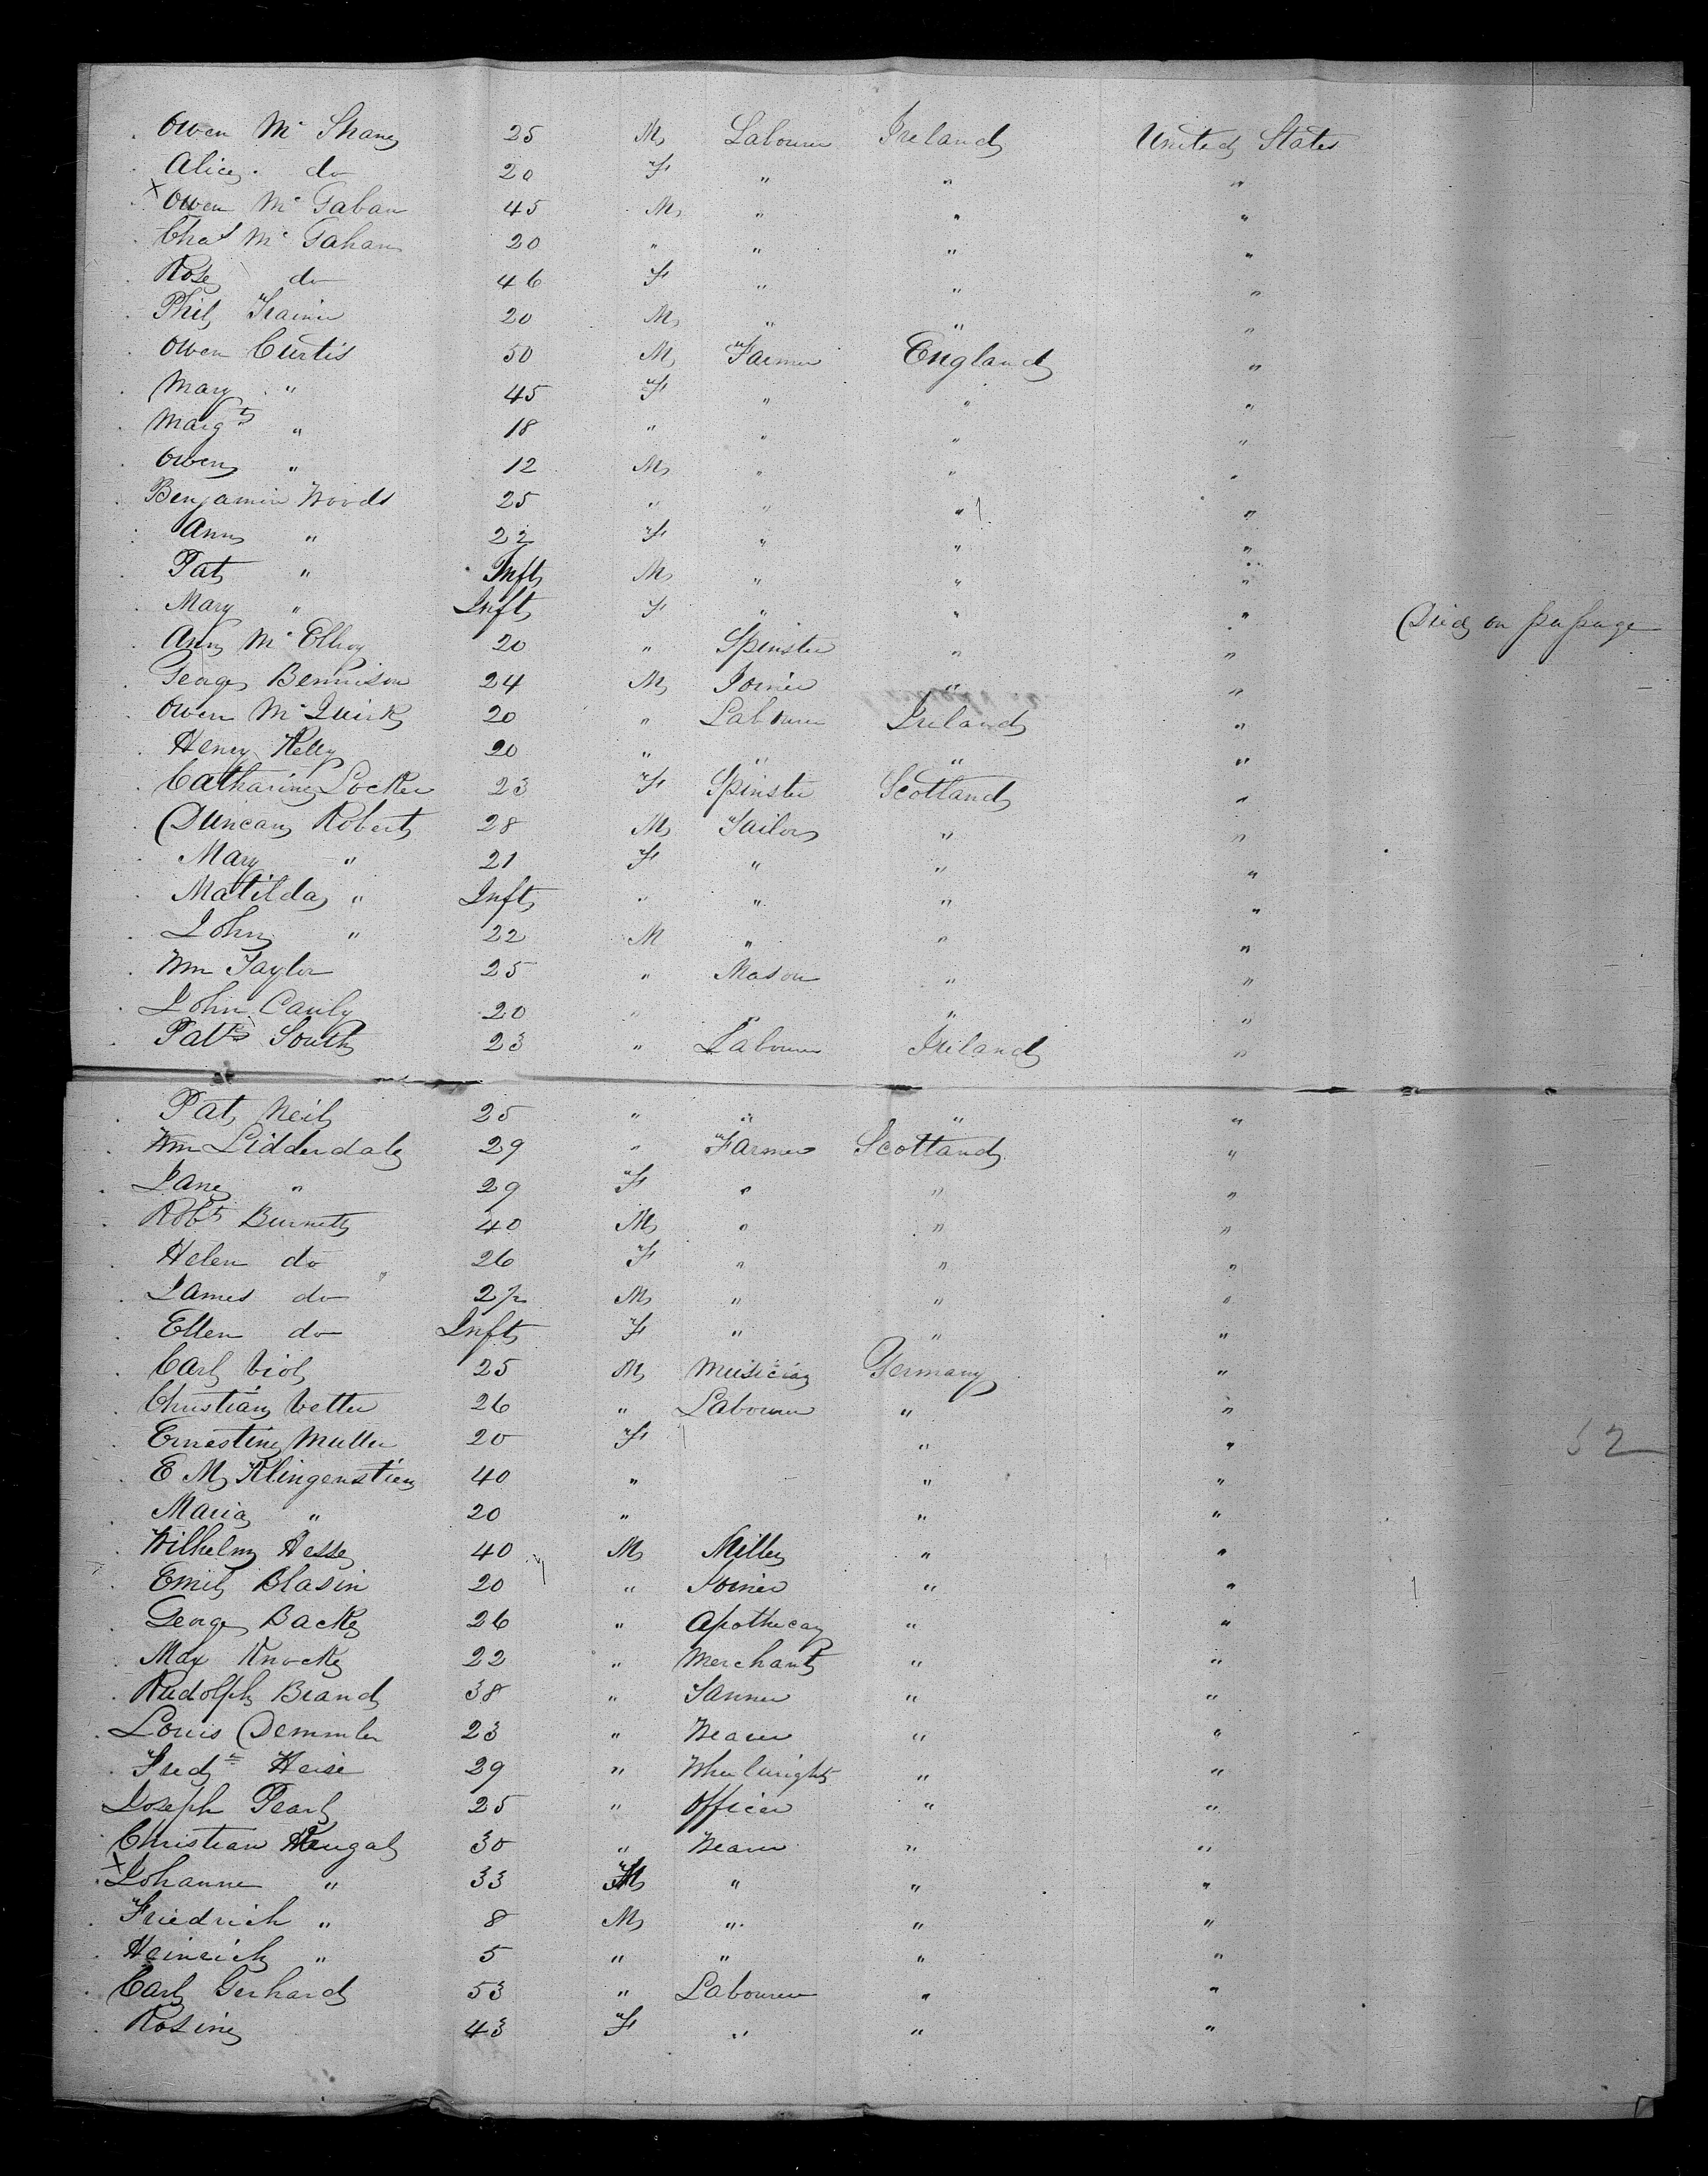 Owen Mc Shane 25 M Labourer Ireland United States
Alice do 20 F " " "
x Owen Mc Gahan 45 M " " "
Chas Mc Gahan 20 " " " "
Rose do 46 F " " "
Phil Trainer 20 M " " "
Owen Curtis 50 M Farmer England "
Mary " 45 F " " "
Margt " 18 " " " "
Owen " 12 M " " "
Benjamin Woods 25 " " " "
Ann " 22 F " " "
Pat " Inft M " " "
Mary " Inft F " " " Died on passage
Ann Mc Elroy 20 " Spinster " "
George Bennison 24 M Joiner " "
Owen Mc Quirk 20 " Labourer Ireland "
Henry Kelly 20 " " " "
Catharine Locker 23 F Spinster Scotland "
Duncan Robert 28 M Tailor " "
Mary " 21 F " " "
Matilda " Inft " " " "
John " 22 M " " "
Wm Taylor 25 " Mason " "
John Cauly 20 " " " "
Patk South 23 " Labourer Ireland "
Pat Neil 25 " " " "
Wm Lidderdale 29 " Farmer Scotland "
Jane " 29 F " " "
Robt Burnett 40 M " " "
Helen do 26 F " " "
James do M " " "
Ellen do Inft F " " "
Carl Viol 25 M Musician Germany "
Christian Vetter 26 " Labourer " "
Ernestine Muller 20 F " "
E M Klingenstien 40 " " "
Maria " 20 " " "
Wilhelm Hesse 40 M Miller " "
Emil Blasin 20 " Joiner " "
George Backe 26 " Apothecay " "
Max Knocke 22 " Merchant " "
Rudolph Brand 38 " Tanner " "
Louis Demmler 23 " Weaver " "
Fredk Heise 29 " Wheelwright " "
Joseph Pearl 25 " Officer " "
Christian Hengal 30 " Weaver " "
x Johanne " 33 F " " "
Friedrich " 8 M " " "
Heinrich " 5 " " " "
Carl Gerhard 53 " Labourer " "
Rosine 43 F " " "
52